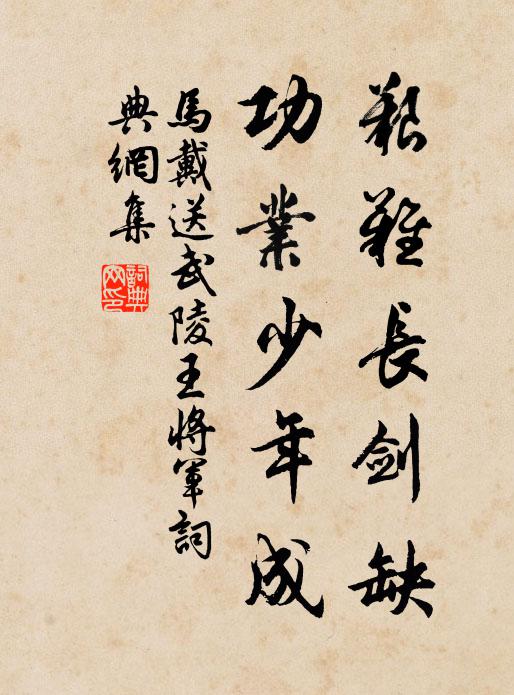 艱難長劍缺
功業少年成
馬戴送武陵王將軍詞
典網集
詞典
网印